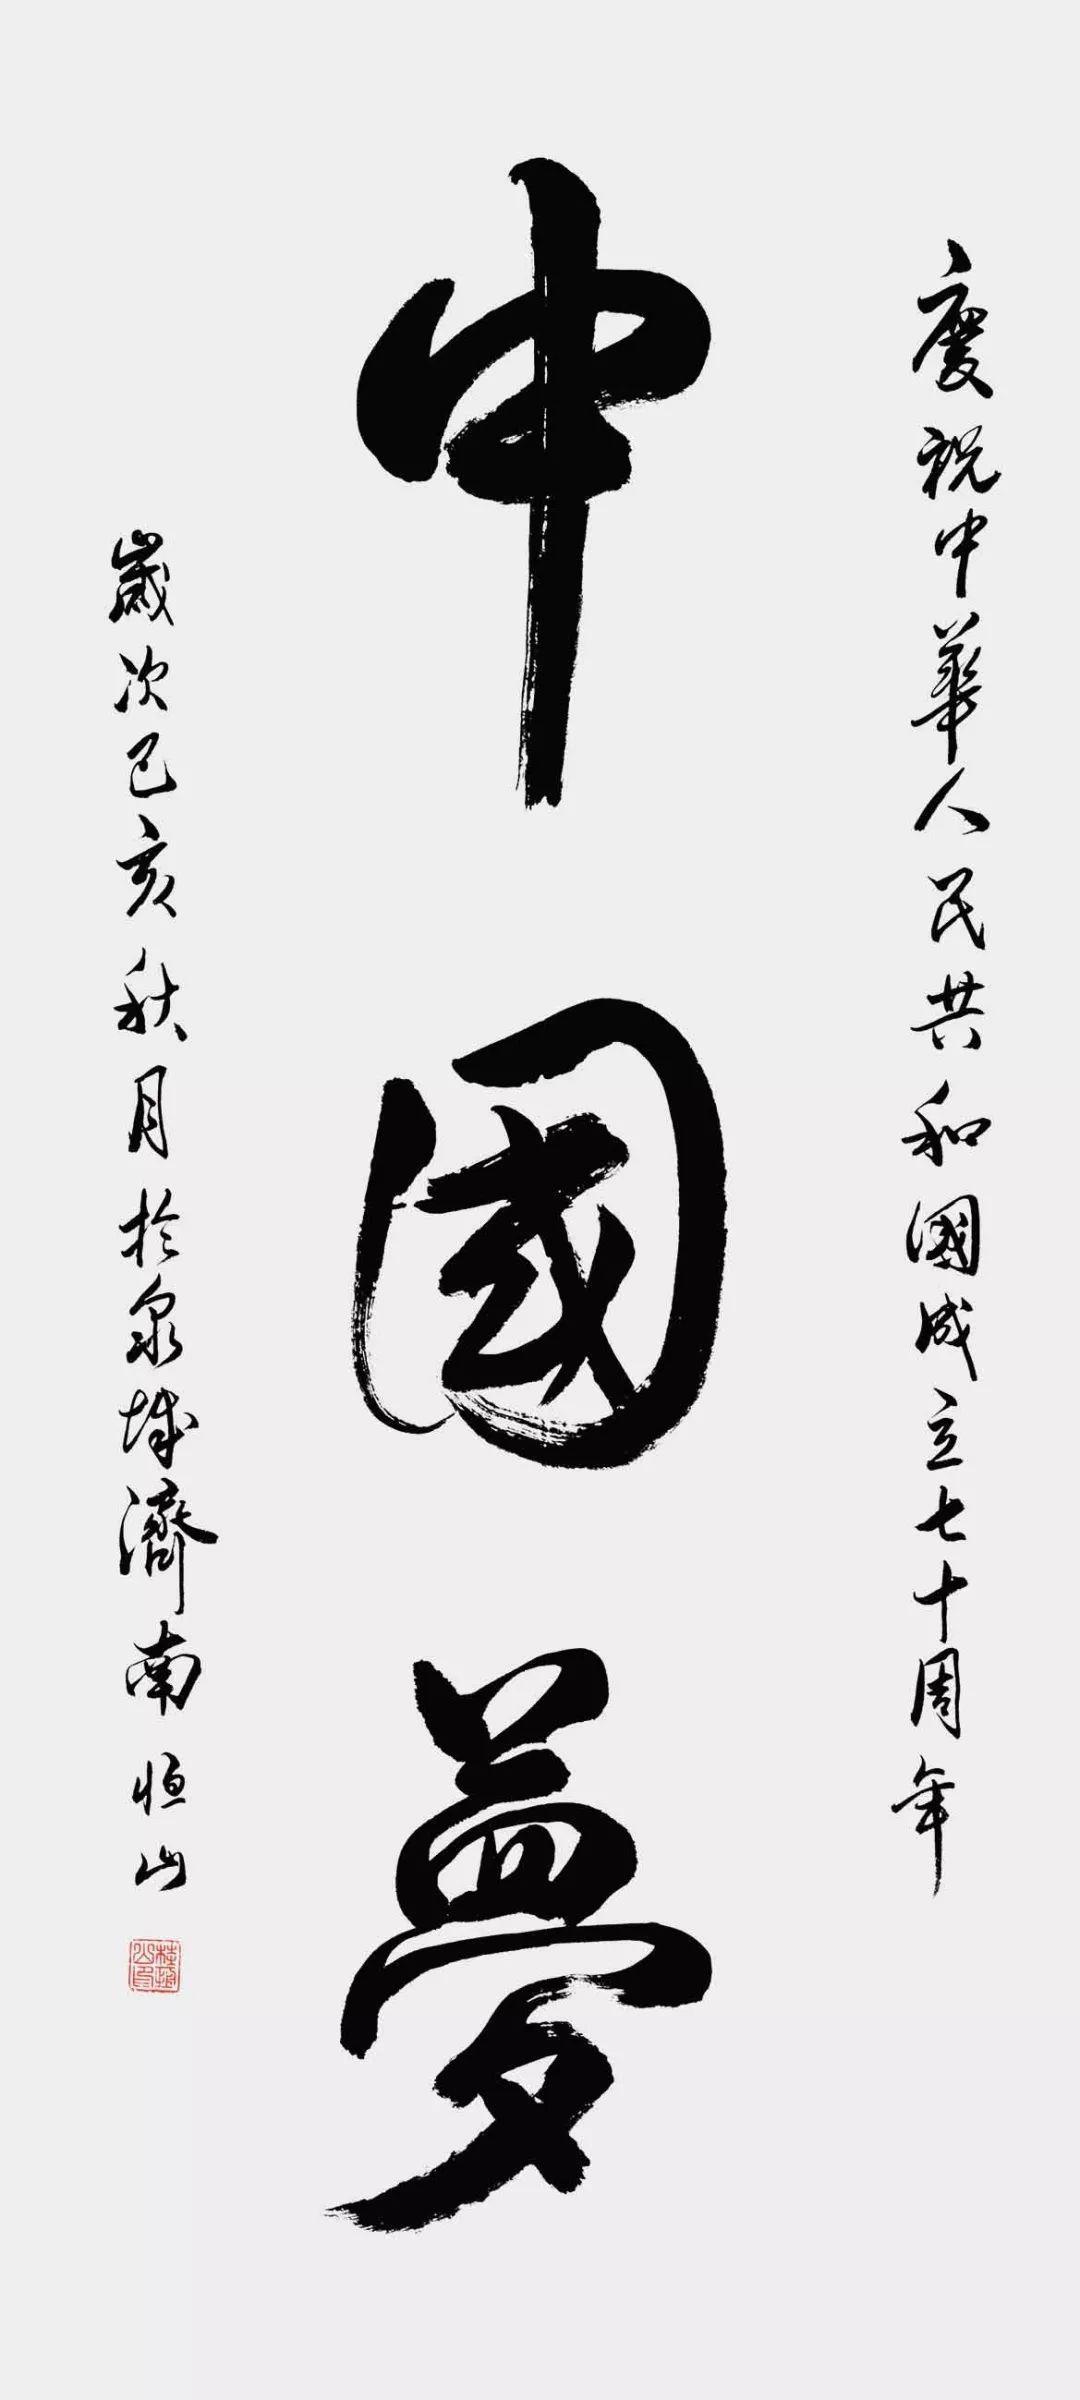 慶祝中華人民共和國成立七十周年
中國夢
歲次己亥秋月於泉城濟南恒山